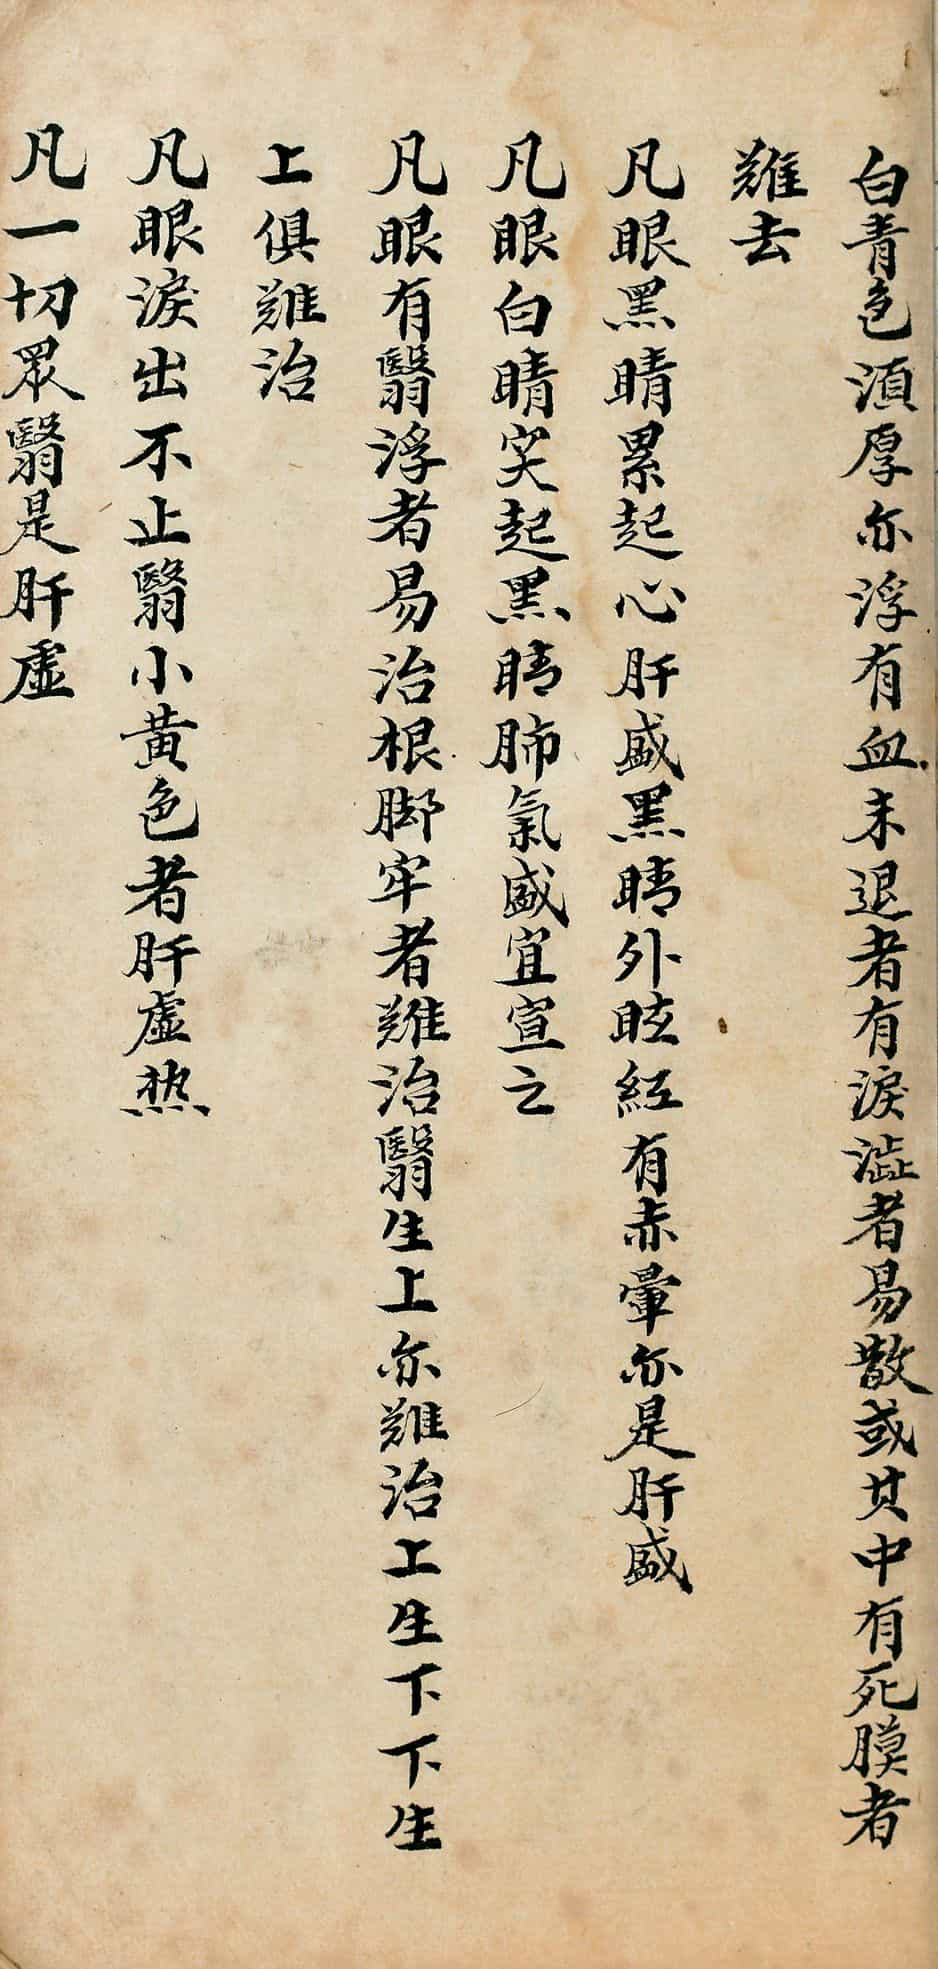 白青色湏厚亦浮有血未退者有淚澁者易散或其中有死膜者
難去
凡眼黑睛累起心肝盛黑睛外眩紅有赤暈亦是肝盛
凡眼白睛突起黑睛肺氣盛宜宣之
凡眼有翳浮者易治根脚牢者難治翳生上亦難治上生下下生
上俱難治
凡眼淚出不止翳小黃色者肝虛热
凡一切眾翳是肝虛